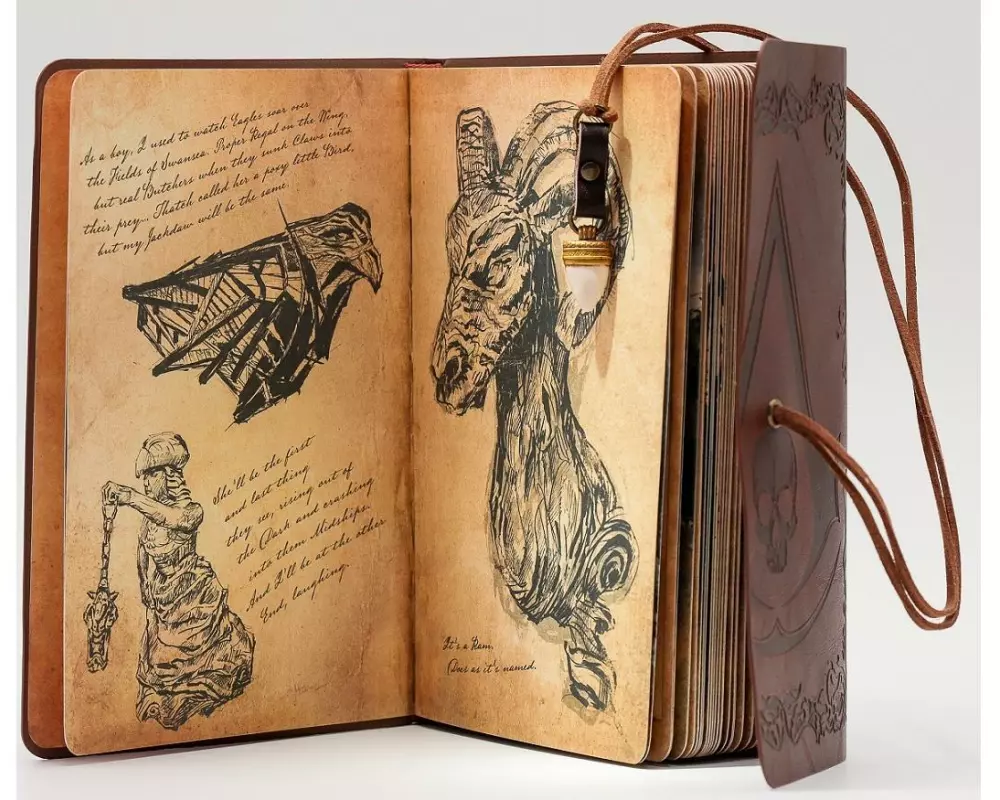 As a boy, I used to watch Eagles soar over
the Fields of Swansea. Proper Regal on the Wing,
but real Butchers when they sunk Claws into
their prey... Thatch called her a poxy little Bird,
but my Jackdaw will be the same.
She'll be the first
and last thing
they see, rising out of
the Dark and crashing
into them Midships.
And I'll be at the other
End, laughing.
It's a Ram.
Does as it's named.